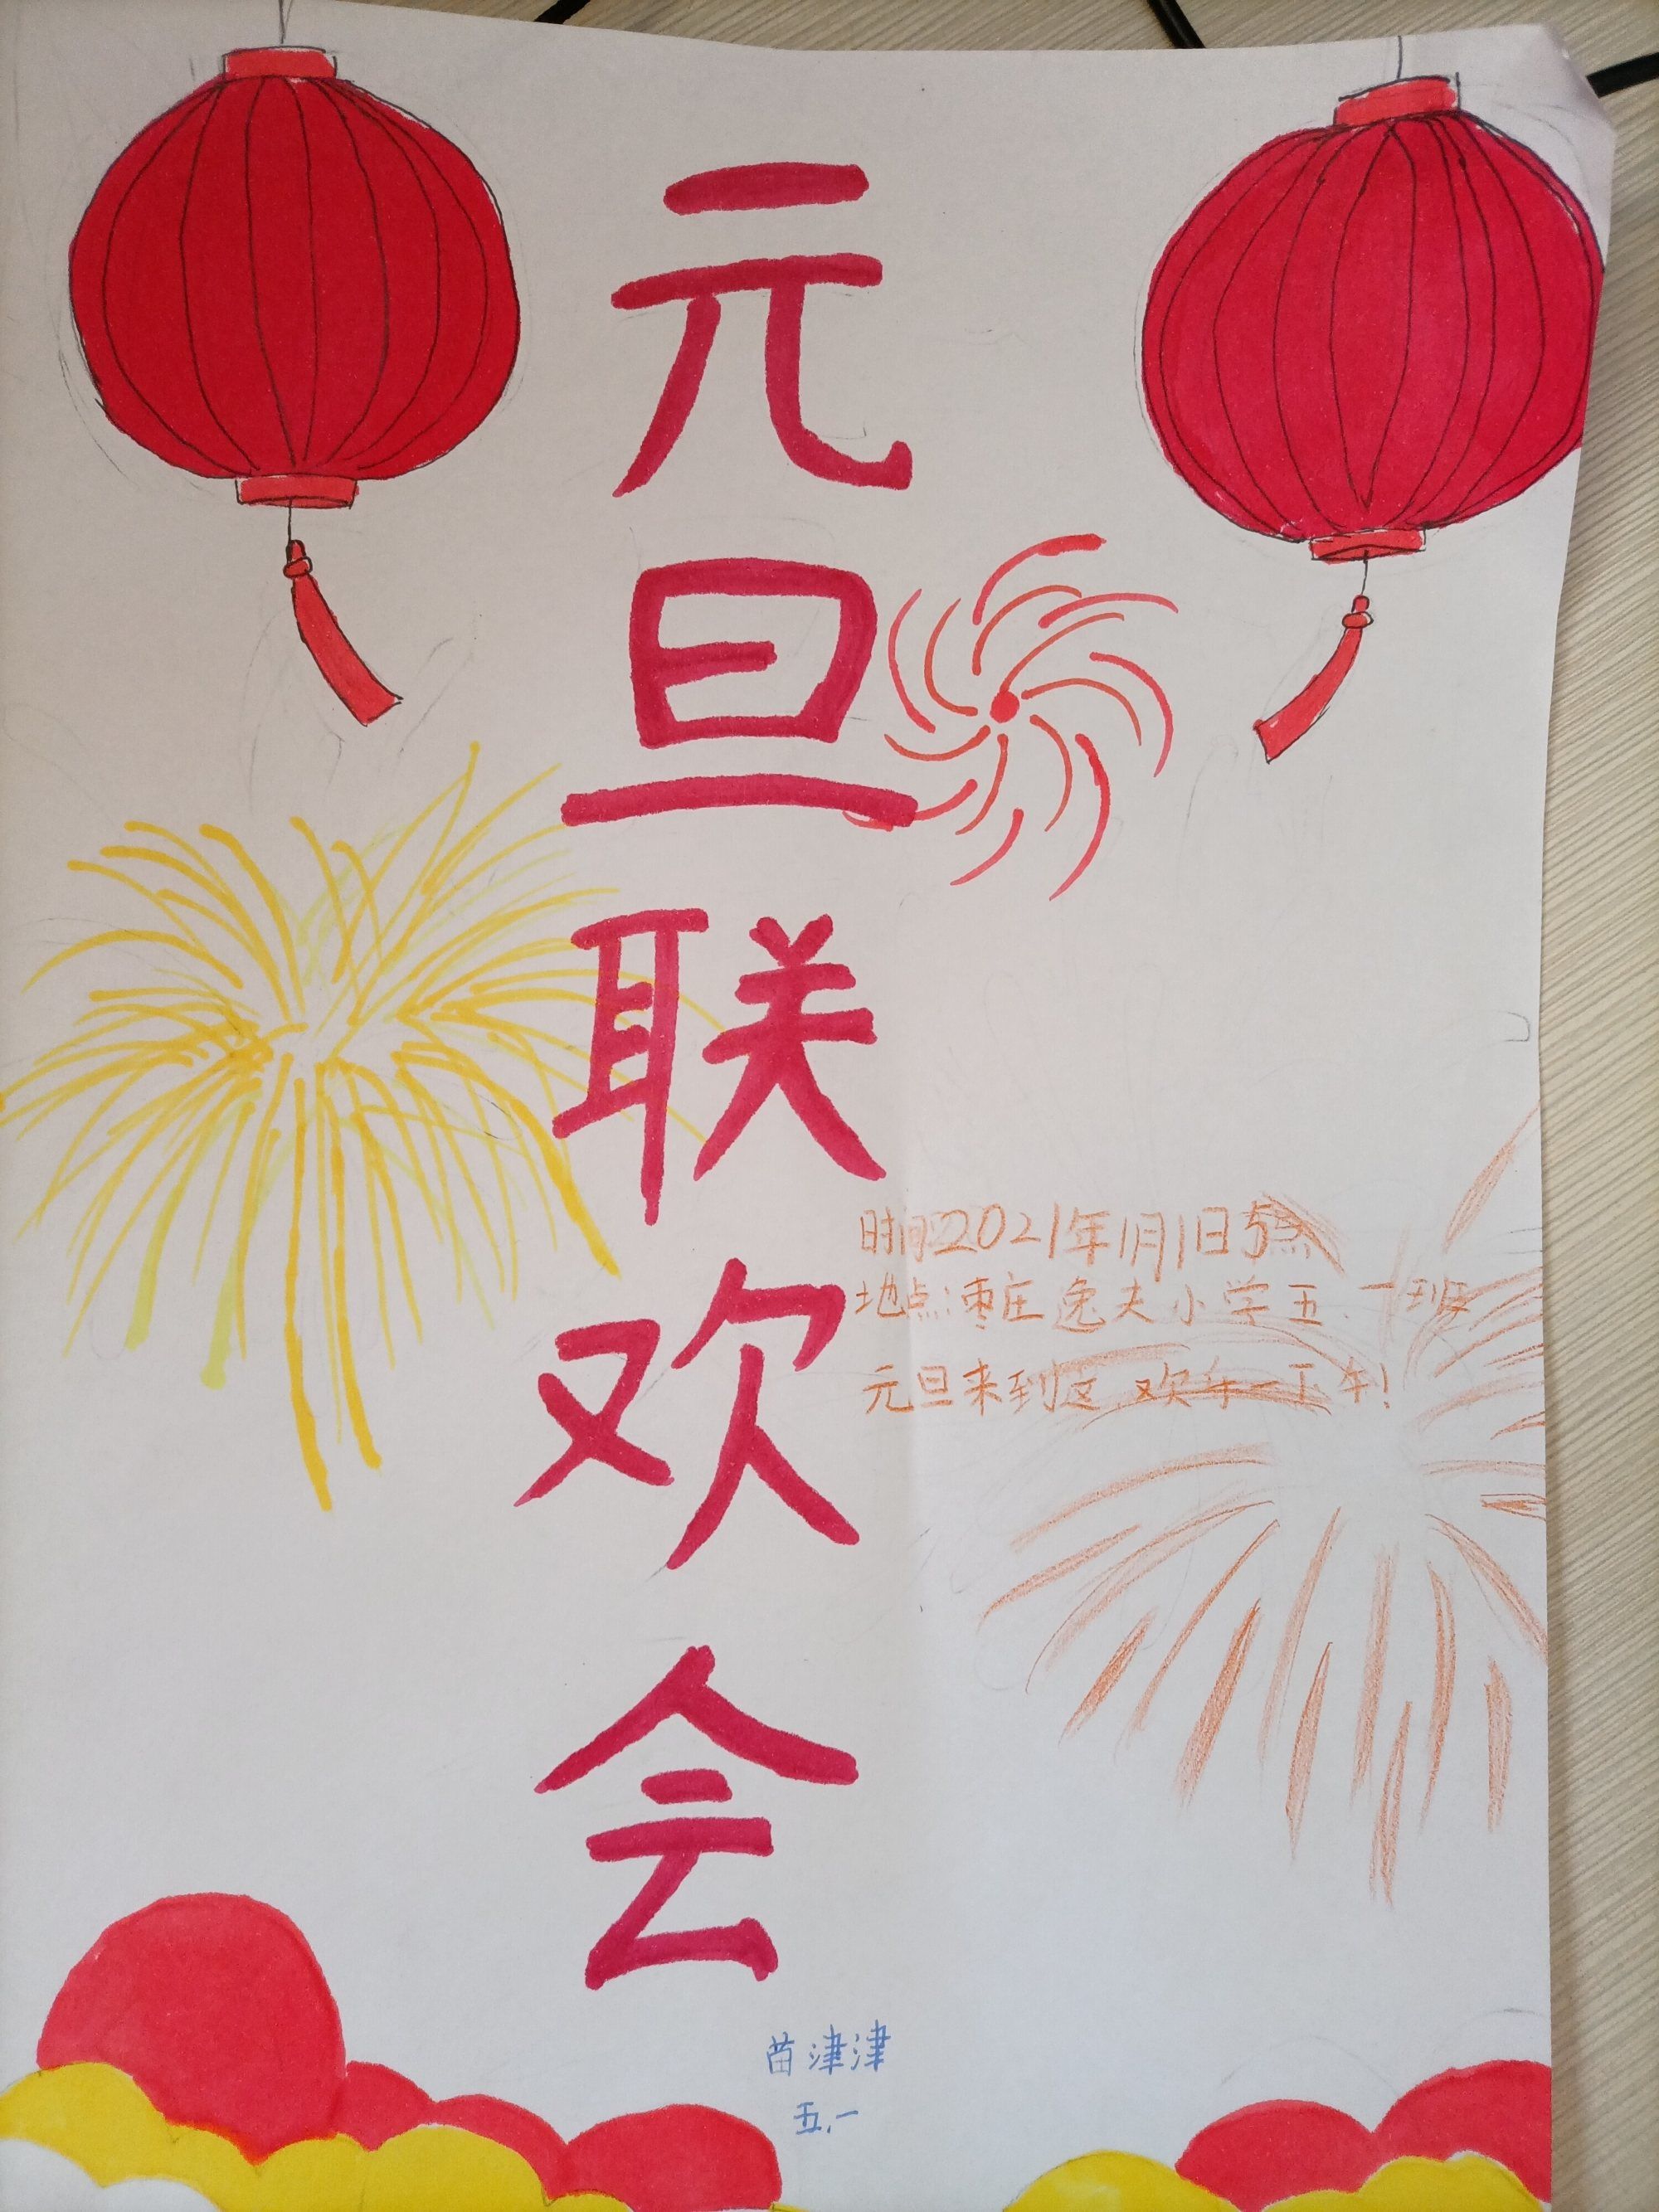 元旦联欢会
时间:2021年1月1日5点
地点:枣庄逸夫小学五.一班
元旦来到这,欢乐一下午!
苗津津
五.一